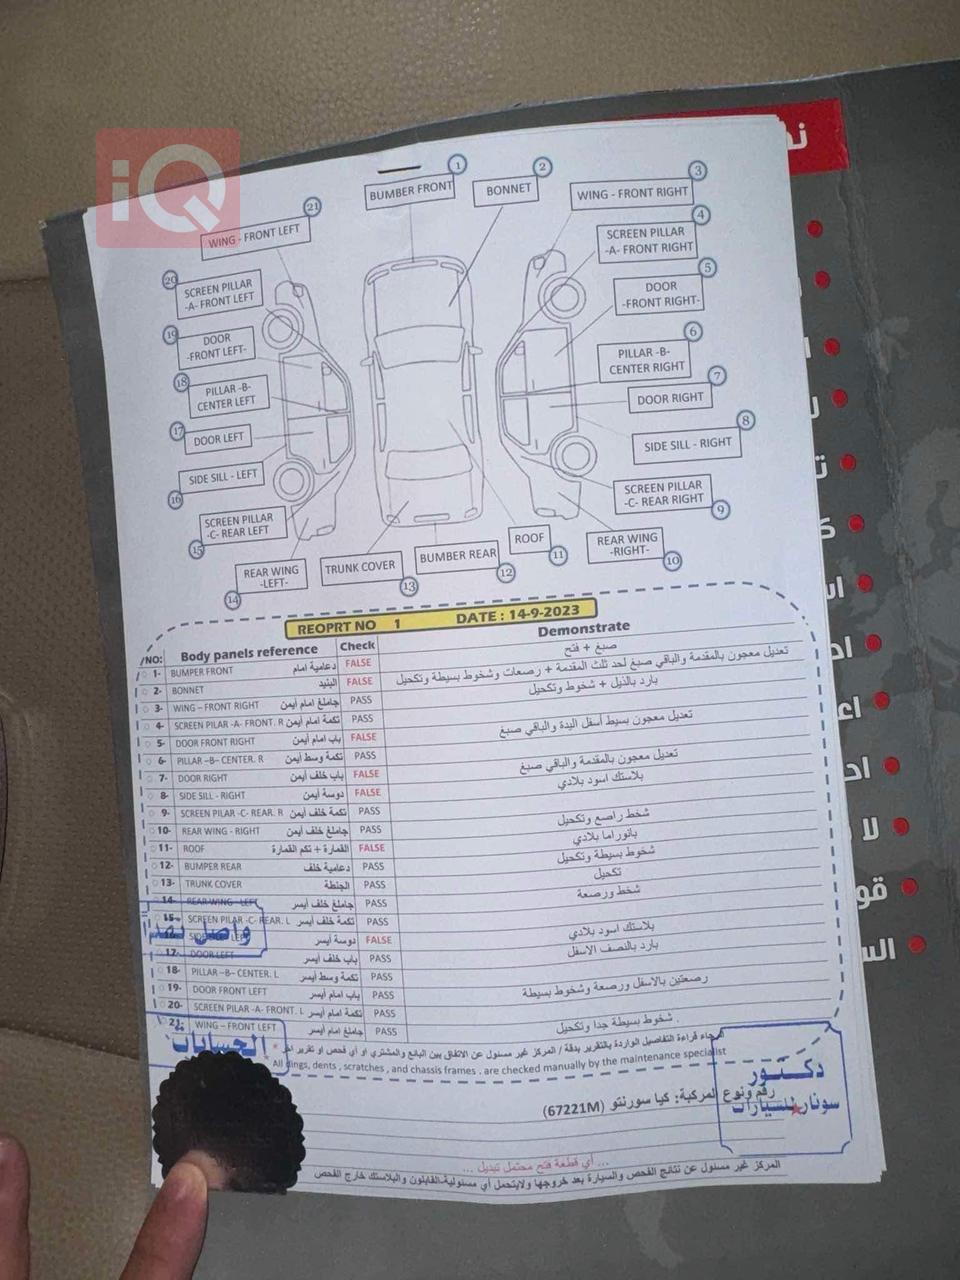 iQ
1
BUMBER FRONT
2
BONNET
3
WING - FRONT RIGHT
21
WING - FRONT LEFT
4
SCREEN PILLAR
-A- FRONT RIGHT
20
SCREEN PILLAR
-A- FRONT LEFT
5
DOOR
-FRONT RIGHT-
19
DOOR
-FRONT LEFT-
6
PILLAR -B-
CENTER RIGHT
18
PILLAR -B-
CENTER LEFT
7
DOOR RIGHT
17
DOOR LEFT
8
SIDE SILL - RIGHT
SIDE SILL - LEFT
16
SCREEN PILLAR
-C- REAR RIGHT
9
SCREEN PILLAR
-C- REAR LEFT
15
REAR WING
-RIGHT-
10
ROOF
11
BUMBER REAR
12
TRUNK COVER
13
REAR WING
-LEFT-
14
REOPRT NO 1 DATE : 14-9-2023
/NO: Body panels reference Check Demonstrate
1- BUMPER FRONT دعامية امام FALSE صبغ + فتح
2- BONNET البنيد FALSE تعديل معجون بالمقدمة والباقي صبغ لحد ثلث المقدمة + رصعات وشخوط بسيطة وتكحيل
3- WING – FRONT RIGHT جاملغ امام أيمن PASS بارد بالذيل + شخوط وتكحيل
4- SCREEN PILAR -A- FRONT. R تكمة امام أيمن PASS
5- DOOR FRONT RIGHT باب امام أيمن FALSE تعديل معجون بسيط أسفل اليدة والباقي صبغ
6- PILLAR –B– CENTER. R تكمة وسط أيمن PASS
7- DOOR RIGHT باب خلف أيمن FALSE تعديل معجون بالمقدمة والباقي صبغ
8- SIDE SILL - RIGHT دوسة أيمن FALSE بلاستك اسود بلادي
9- SCREEN PILAR -C- REAR. R تكمة خلف أيمن PASS
10- REAR WING - RIGHT جاملغ خلف أيمن PASS شخط راصع وتكحيل
11- ROOF القمارة + تكم القمارة FALSE بانوراما بلادي
12- BUMPER REAR دعامية خلف PASS شخوط بسيطة وتكحيل
13- TRUNK COVER الجنطة PASS تكحيل
14- REAR WING - LEFT جاملغ خلف أيسر PASS شخط ورصعة
15- SCREEN PILAR -C- REAR. L تكمة خلف أيسر PASS
16- SIDE SILL - LEFT دوسة أيسر FALSE بلاستك اسود بلادي
17- DOOR LEFT باب خلف أيسر PASS بارد بالنصف الاسفل
18- PILLAR –B– CENTER. L تكمة وسط أيسر PASS
19- DOOR FRONT LEFT باب امام أيسر PASS رصعتين بالاسفل ورصعة وشخوط بسيطة
20- SCREEN PILAR -A- FRONT. L تكمة امام أيسر PASS
21- WING – FRONT LEFT جاملغ امام أيسر PASS شخوط بسيطة جدا وتكحيل .
واصل
الحسابات
قراءة التفاصيل الواردة بالتقرير بدقة / المركز غير مسئول عن الاتفاق بين البائع والمشتري او أي فحص او تقرير
* All dings, dents , scratches , and chassis frames . are checked manually by the maintenance specialist
دكتور
سونار للسيارات
رقم ونوع المركبة: كيا سورنتو (67221M)
... أي قطعة فتح محتمل تبديل ...
المركز غير مسئول عن نتائج الفحص والسيارة بعد خروجها ولايتحمل أي مسئولية-القابلون والبلاستك خارج الفحص